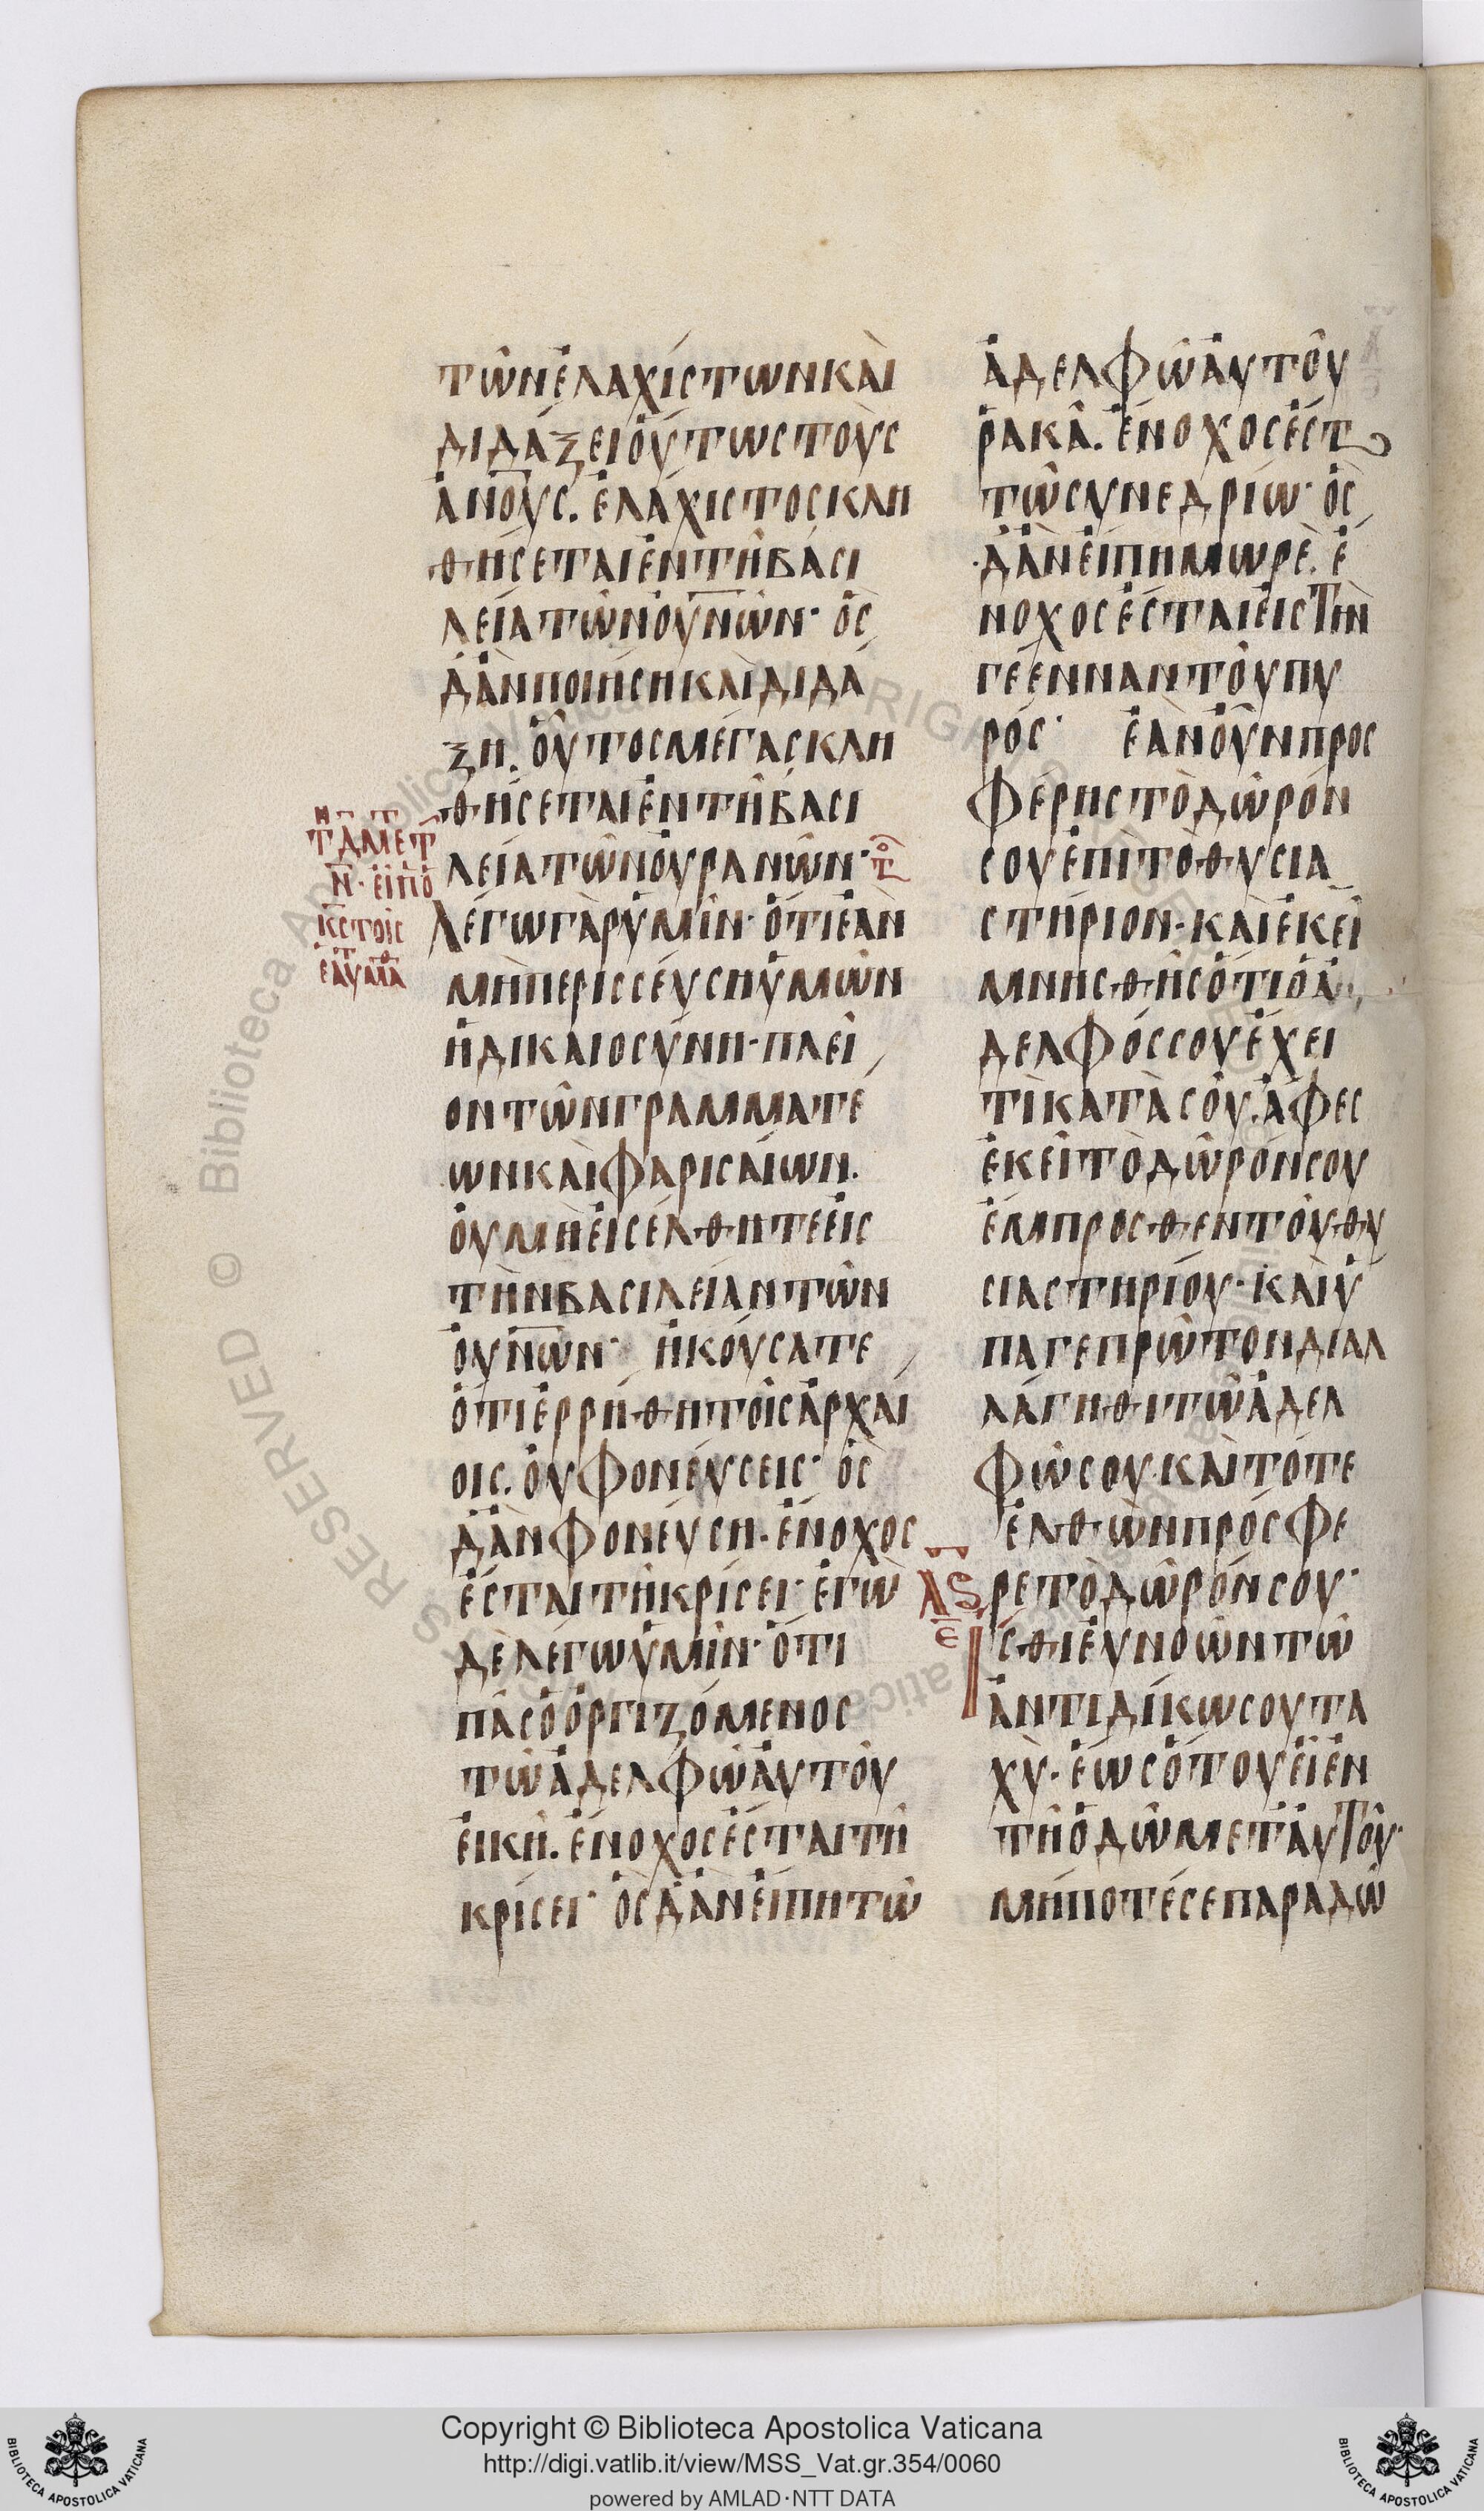 ΤῶΝἐΛΑΧίϹΤωΝΚΑὶ
ΔΙΔΆΞΕΙΟὕΤωϹΤΟῪϹ
ἈΝΟΥϹ. ἘΛΆΧΙϹΤΟϹΚΛΗ
ΘΉϹΕΤΑΙἘΝΤῇΒΑϹΙ
ΛΕΊΑΤῶΝΟΥΝῶΝ· ὋϹ
ΔἊΝΠΟΙΉϹΗΚΑῚΔΙΔΆ
ΞΗ. ΟὟΤΟϹΜΈΓΑϹΚΛΗ
ΘΉϹΕΤΑΙἘΝΤῇΒΑϹΙ
ΛΕΊΑΤῶΝΟΥΡΑΝῶΝ·
ΛΈΓωΓᾺΡὙΜῖΝ· ὍΤΙἘᾺΝ
ΜῊΠΕΡΙϹϹΕΎϹΗὙΜῶΝ
ἩΔΙΚΑΙΟϹΎΝΗ· ΠΛΕῖ
ΟΝΤῶΝΓΡΑΜΜΑΤΈ
ωΝΚΑῚΦΑΡΙϹΑΊωΝ.
ΟὐΜῊΕἸϹΈΛΘΗΤΕΕἸϹ
ΤῊΝΒΑϹΙΛΕΊΑΝΤῶΝ
ΟΥΝῶΝ· ἨΚΟΎϹΑΤΕ
ὍΤΙἘΡΡΉΘΗΤΟῖϹἈΡΧΑΊ
ΟΙϹ. ΟὐΦΟΝΕΎϹΕΙϹ· ὋϹ
ΔἊΝΦΟΝΕΎϹΗ· ἜΝΟΧΟϹ
ἜϹΤΑΙΤῇΚΡΊϹΕΙ· ἘΓὼ
ΔῈΛΈΓωὙΜῖΝ· ὍΤΙ
ΠᾶϹὉὈΡΓΙΖΌΜΕΝΟϹ
Τῷ ἈΔΕΛΦῷΑὐΤΟῦ
ΕἸΚῆ. ἜΝΟΧΟϹἜϹΤΑΙΤῇ
ΚΡΊϹΕΙ· ὋϹΔἊΝΕἼΠΗΤῷ
ἈΔΕΛΦῷΑὐΤΟῦ
ῬΑΚᾶ. ἜΝΟΧΟϹἜϹΤ
ΤῷϹΥΝΕΔΡΊω· ὋϹ
ΔἊΝΕἼΠΗΜωΡΈ. Ἔ
ΝΟΧΟϹἜϹΤΑΙΕἸϹΤῊΝ
ΓΈΕΝΝΑΝΤΟῦΠΥ
ΡΌϹ· ἘᾺΝΟὖΝΠΡΟϹ
ΦΈΡΗϹΤῸΔῶΡΌΝ
ϹΟΥἘΠῚΤῸΘΥϹΙΑ
ϹΤΉΡΙΟΝ· ΚΑῚἘΚΕῖ
ΜΝΗϹΘῆϹὍΤΙὉἈ
ΔΕΛΦΌϹϹΟΥἜΧΕΙ
ΤῚΚΑΤᾺϹΟῦ. ἌΦΕϹ
ἘΚΕῖΤῸΔῶΡΌΝϹΟΥ
ἜΜΠΡΟϹΘΕΝΤΟῦΘΥ
ϹΙΑϹΤΗΡΊΟΥ· ΚΑῚὝ
ΠΑΓΕΠΡῶΤΟΝΔΙΑΛ
ΛΆΓΗΘΙΤῷἈΔΕΛ
ΦῷϹΟΥ· ΚΑῚΤΌΤΕ
ἘΛΘὼΝΠΡΌϹΦΕ
ΡΕΤῸΔῶΡΌΝϹΟΥ·
ἼϹΘΙΕὐΝΟῶΝΤῷ
ἈΝΤΙΔΊΚωϹΟΥΤΑ
ΧΎ· ἝωϹὍΤΟΥΕἾἘΝ
ΤῇὉΔῷΜΕΤΑὐΤΟῦ·
ΜΉΠΟΤΈϹΕΠΑΡΑΔῷ
Copyright © Biblioteca Apostolica Vaticana
http://digi.vatlib.it/view/MSS_Vat.gr.354/0060
powered by AMLAD·NTT DATA